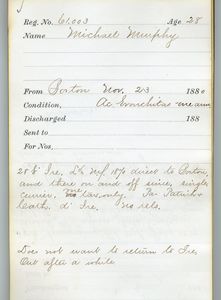 Reg. No. 61.003 Age 28
Name Michael Murphy
From Boston Nov. 23 188
Condition, Ac. bronchitis - one arm
Discharged 188
Sent to
For Nos.
28 b' Ire. Ld 1870 direct to Boston,
and there on and off since, single,
currier, one tax only. Fa. Patrick
Cath. d' Ire. No rels.
Does not want to return to Ire.
Out after a while